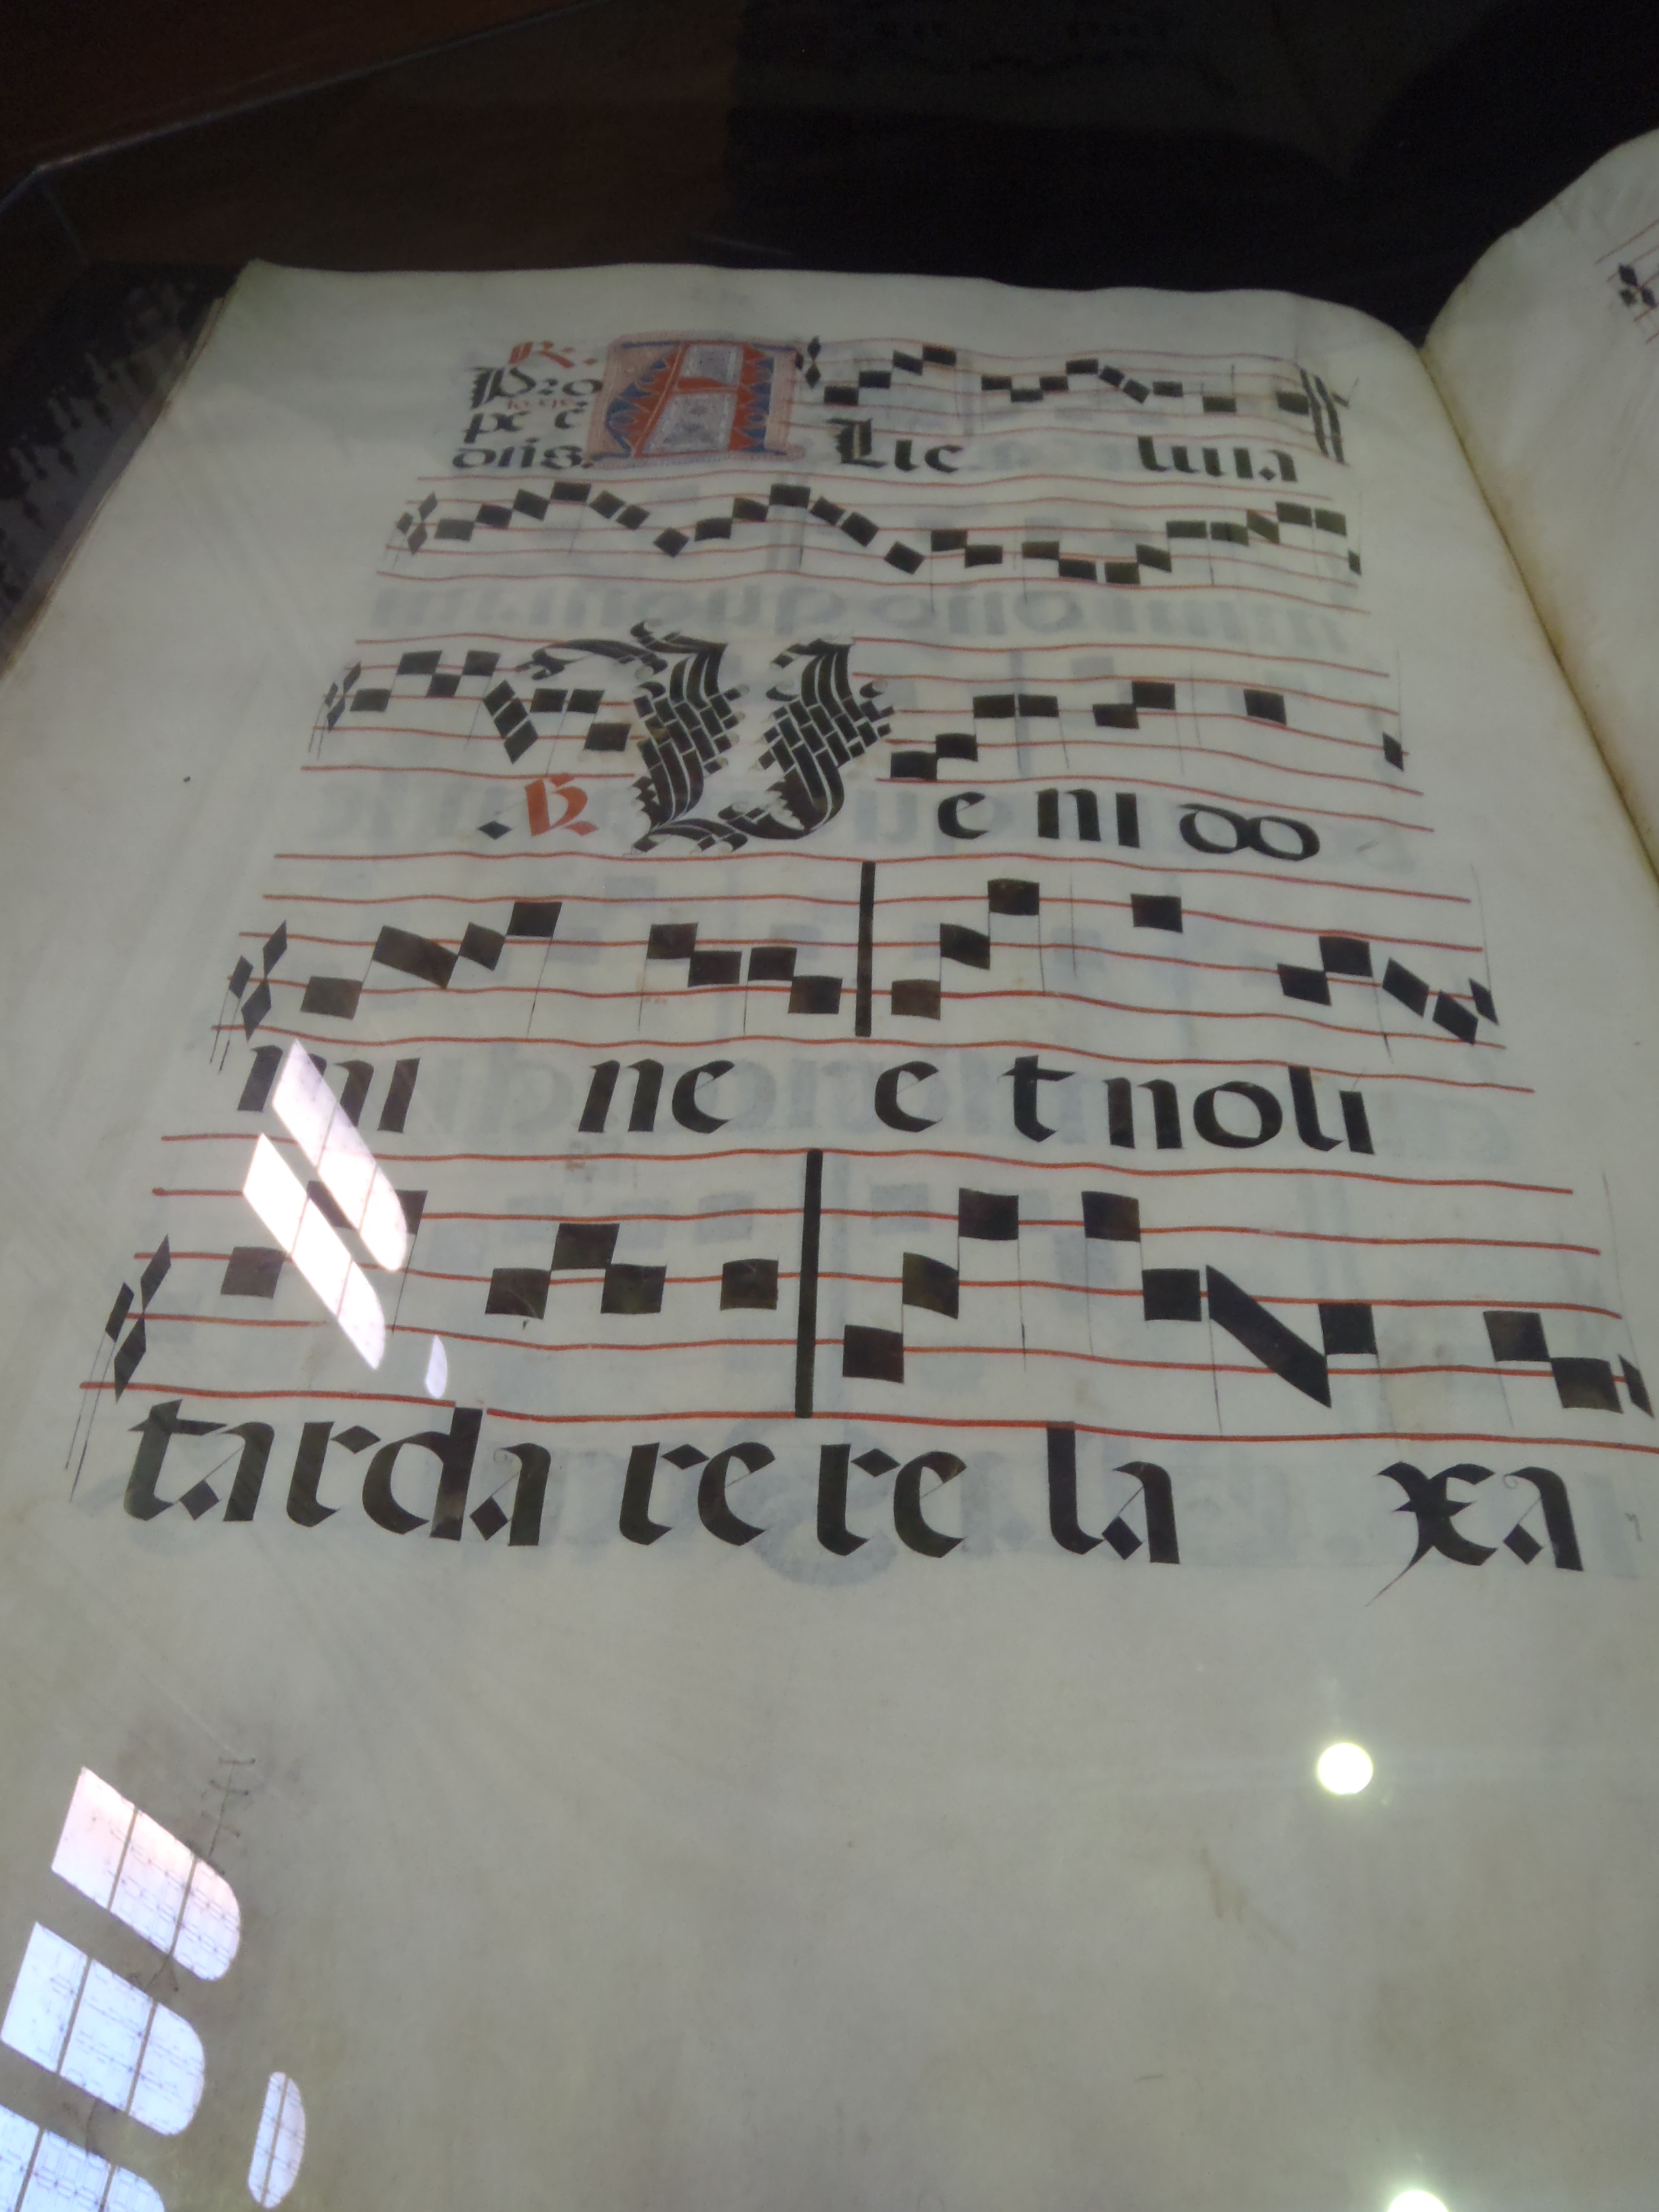 R.
Pro
pe e
onis.
A Lle luia
.V. Ve ni do
mi ne e t noli
tarda re re la xa